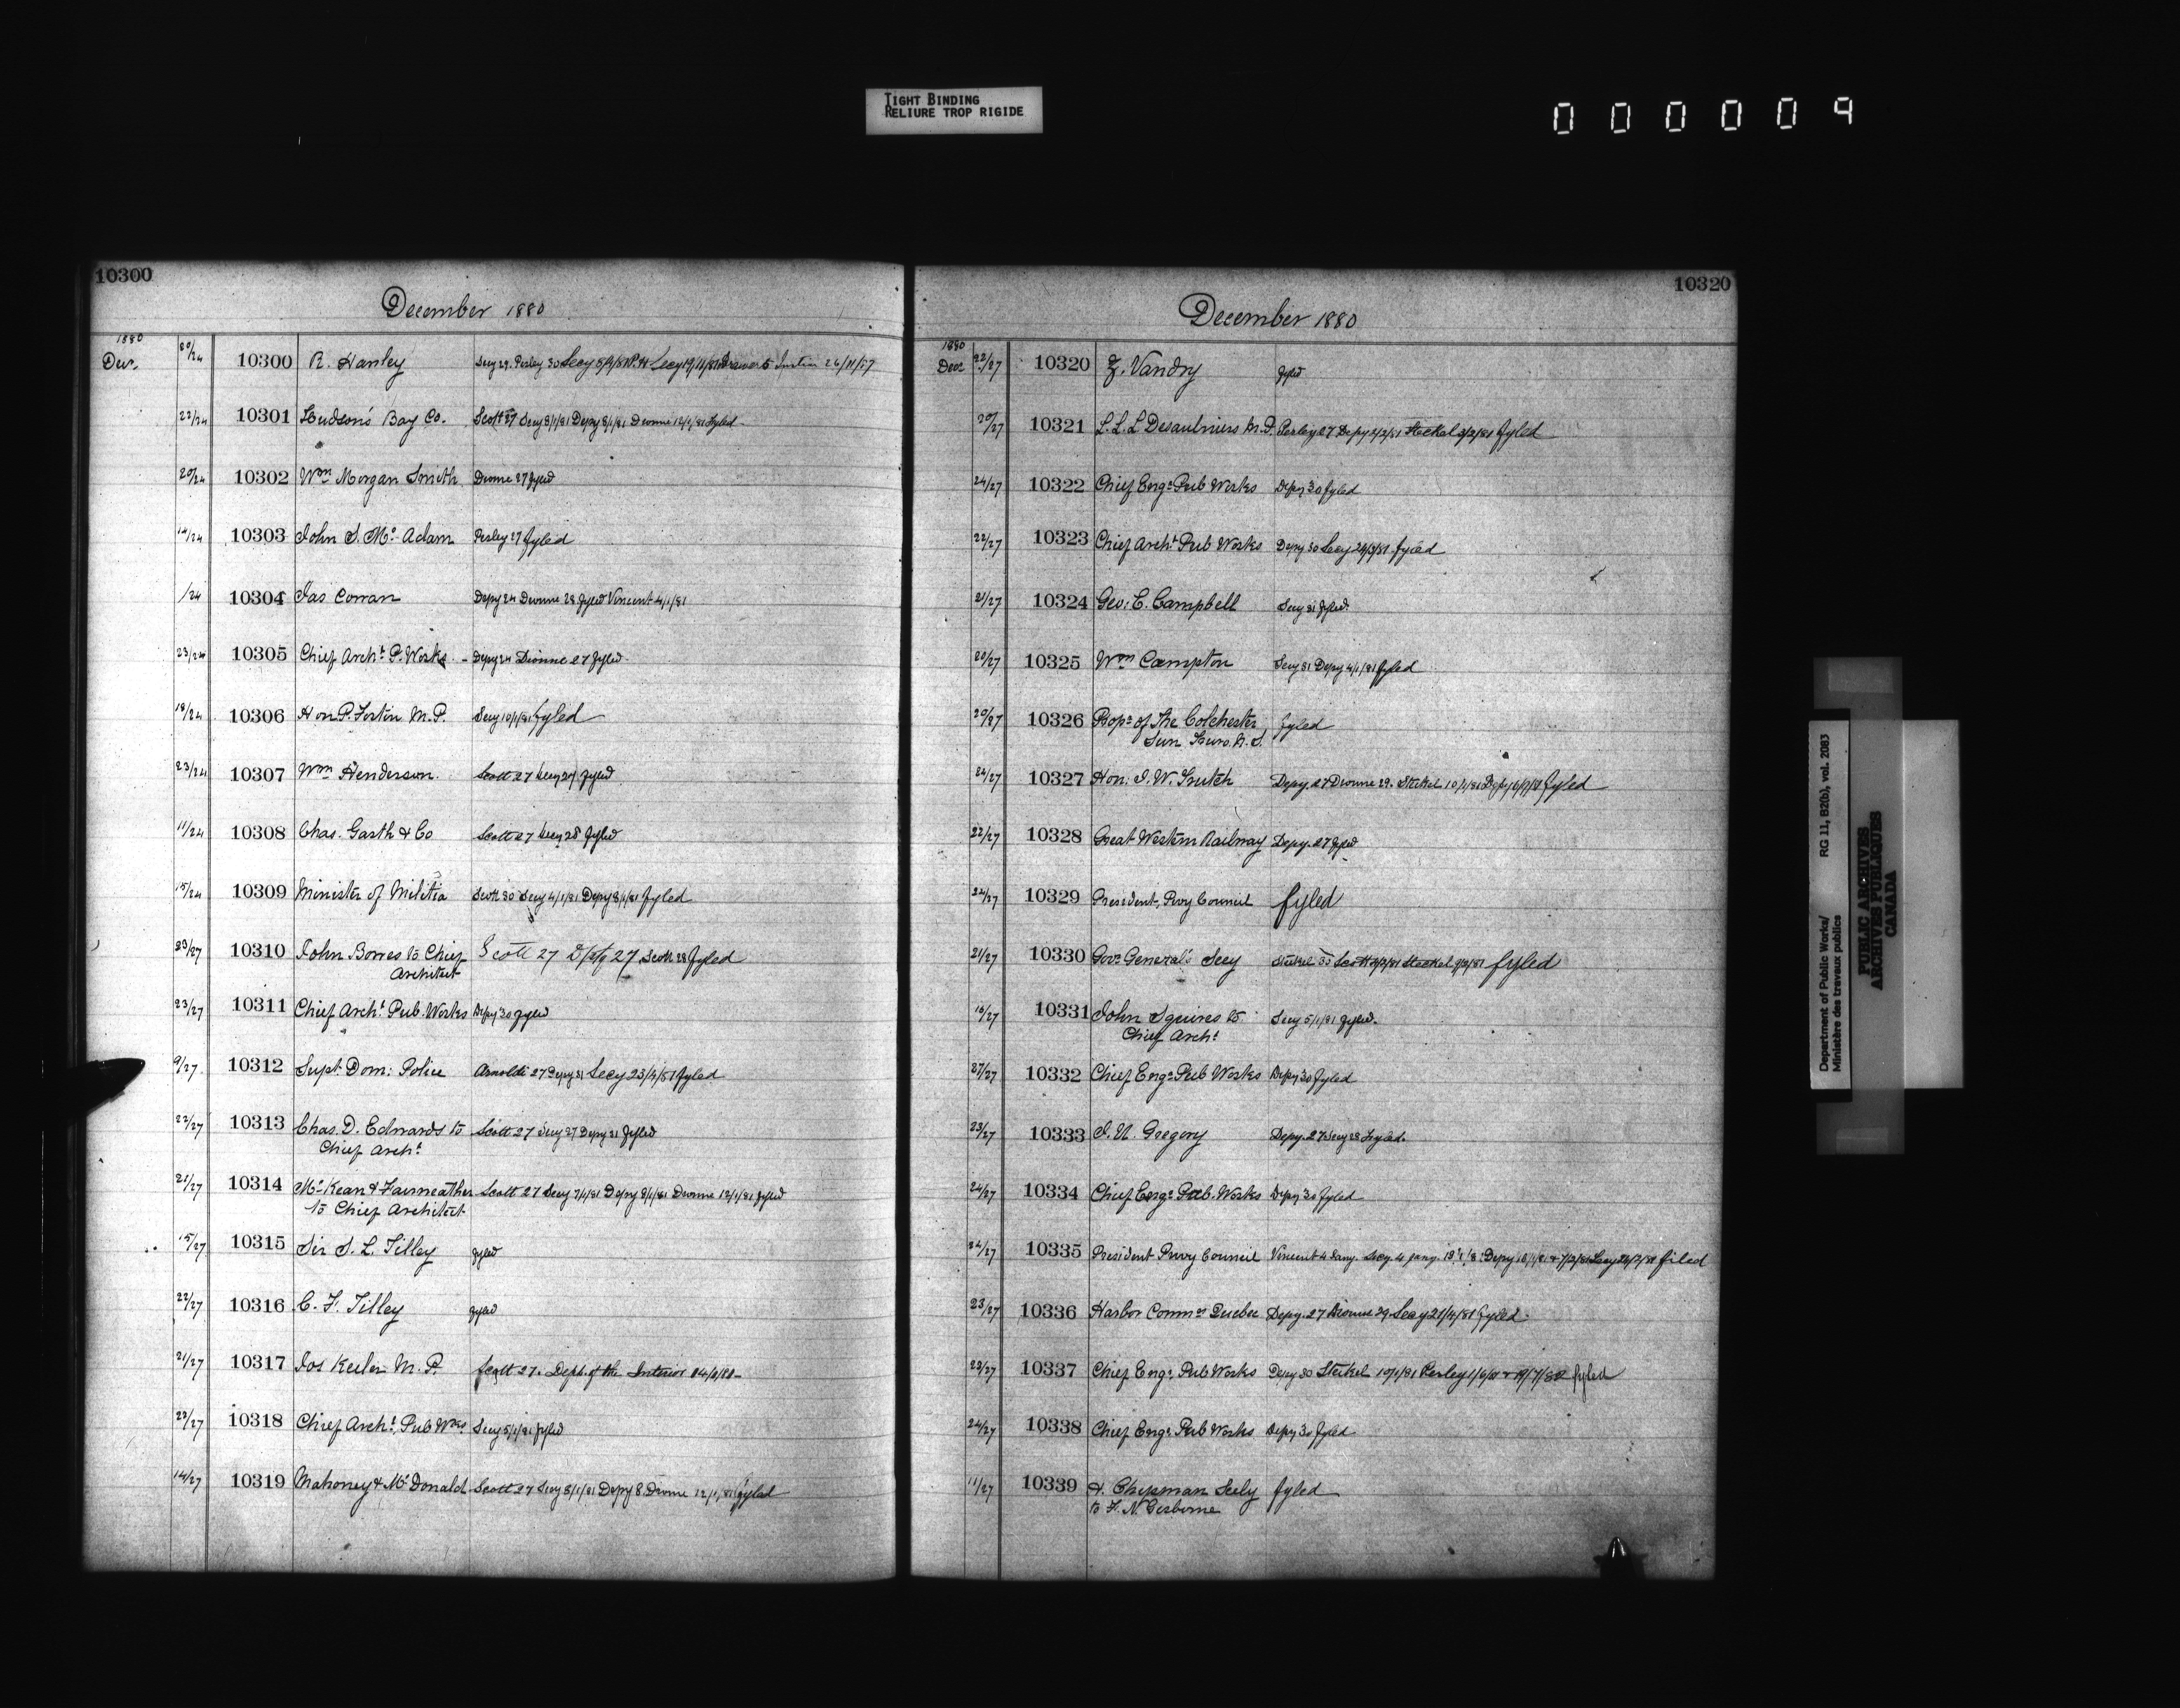 TIGHT BINDING
RELIURE TROP RIGIDE
000009
10300
December 1880
1880
Dec. 20/24 10300 R. Hanley Secy 29. Perley 30 Secy
22/24 10301 Hudson's Bay Co. Scott 27 Secy 8/1/81 Depy 8/1/81 Dionne 12/1/81 Fyled
20/24 10302 Wm Morgan Smith Dionne 27 fyled
14/24 10303 John S. Mc Adam Perley 27 fyled
/24 10304 Jas Conran Depy 24 Dionne 28 fyled Vincent 4/1/81
23/24 10305 Chief Archt P. Works - Depy 24 Dionne 27 fyled
18/24 10306 Hon P. Fortin M.P. Secy 10/1/81 fyled
23/24 10307 Wm Henderson. Scott 27 Secy 27 fyled
11/24 10308 Chas. Garth & Co Scott 27 Secy 28 fyled
15/24 10309 Minister of Militia Scott 30 Secy 4/1/81 Depy 8/1/81 fyled
23/27 10310 John Bowes to Chief Scott 27 Depy 27 Scott 28 fyled
Architect
23/27 10311 Chief Archt Pub. Works Depy 30 fyled
9/27 10312 Supt: Dom: Police Arnoldi 27 Depy 31 Secy 23/4/81 fyled
22/27 10313 Chas. D. Edwards to Scott 27 Secy 27 Depy 31 fyled
Chief Archt
21/27 10314 McKean & Fairweather Scott 27 Secy 7/1/81 Depy 8/1/81 Dionne 12/1/81 fyled
to Chief Architect
15/27 10315 Sir S. L. Tilley fyled
22/27 10316 C. F. Tilley fyled
21/27 10317 Jos Keeler M.P. Scott 27. Dept. of the Interior
23/27 10318 Chief Archt. Pub Wks Secy 5/1/81 fyled
14/27 10319 Mahoney & McDonald Scott 27 Secy 8/1/81 Depy 8 Dionne 12/1/81 fyled
10320
December 1880
1880
Dec 22/27 10320 Z. Vandry fyled
20/27 10321 L. L. L Desaulniers M.D. Perley 27 Depy 2/2/81 Steckel 3/2/81 fyled
24/27 10322 Chief Engr Pub Works Depy 30 fyled
22/27 10323 Chief Archt Pub Works Depy 30 Secy 24/3/81 fyled
21/27 10324 Geo: C. Campbell Secy 31 fyled
20/27 10325 Wm Campton Secy 31 Depy 4/1/81 fyled
20/27 10326 Propr of The Colchester fyled
Sun Truro N.S.
24/27 10327 Hon: J. W. Trutch Depy. 27 Dionne 29. Steckel 10/1/81 fyled
22/27 10328 Great Western Railway Depy. 27 fyled
24/27 10329 President, Privy Council fyled
21/27 10330 Govr General's Secy Steckel 30 Scott Steckel fyled
18/27 10331 John Squires to Secy 5/1/81 fyled.
Chief Archt
27/27 10332 Chief Engr Pub Works Depy 30 fyled
23/27 10333 J. U. Gregory Depy. 27 Secy 28 Fyled.
24/27 10334 Chief Engr Pub. Works Depy 30 fyled
24/27 10335 President Privy Council Vincent 4 Jany. Secy 4 Jany. filed
23/27 10336 Harbor Commrs Quebec Depy. 27 Dionne 29 Secy 21/4/81 fyled
23/27 10337 Chief Engr. Pub Works Depy 30 Steckel 10/1/81 Perley fyled
24/27 10338 Chief Engr. Pub Works Depy 30 fyled
11/27 10339 H. Chipman Seely fyled
to F. N. Gisborne
Department of Public Works/ RG 11, B2(b), vol. 2083
Ministère des travaux publics
PUBLIC ARCHIVES
ARCHIVES PUBLIQUES
CANADA